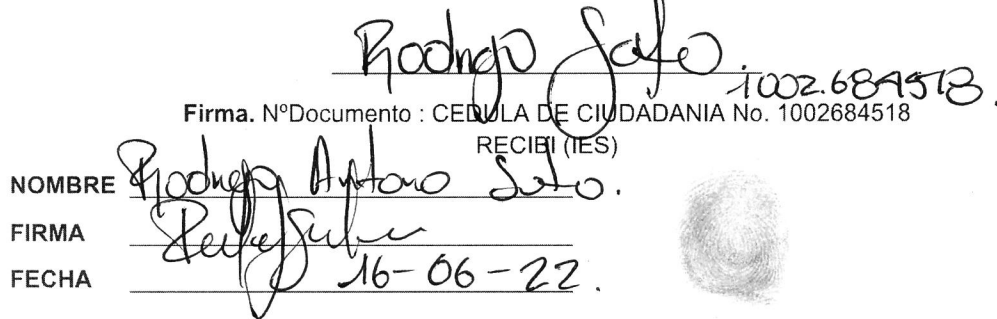 Rodrigo Soto
1002.684518.
Firma. NºDocumento : CEDULA DE CIUDADANIA No. 1002684518
RECIBI (IES)
NOMBRE Rodrigo Antonio Soto.
FIRMA
FECHA 16-06-22.